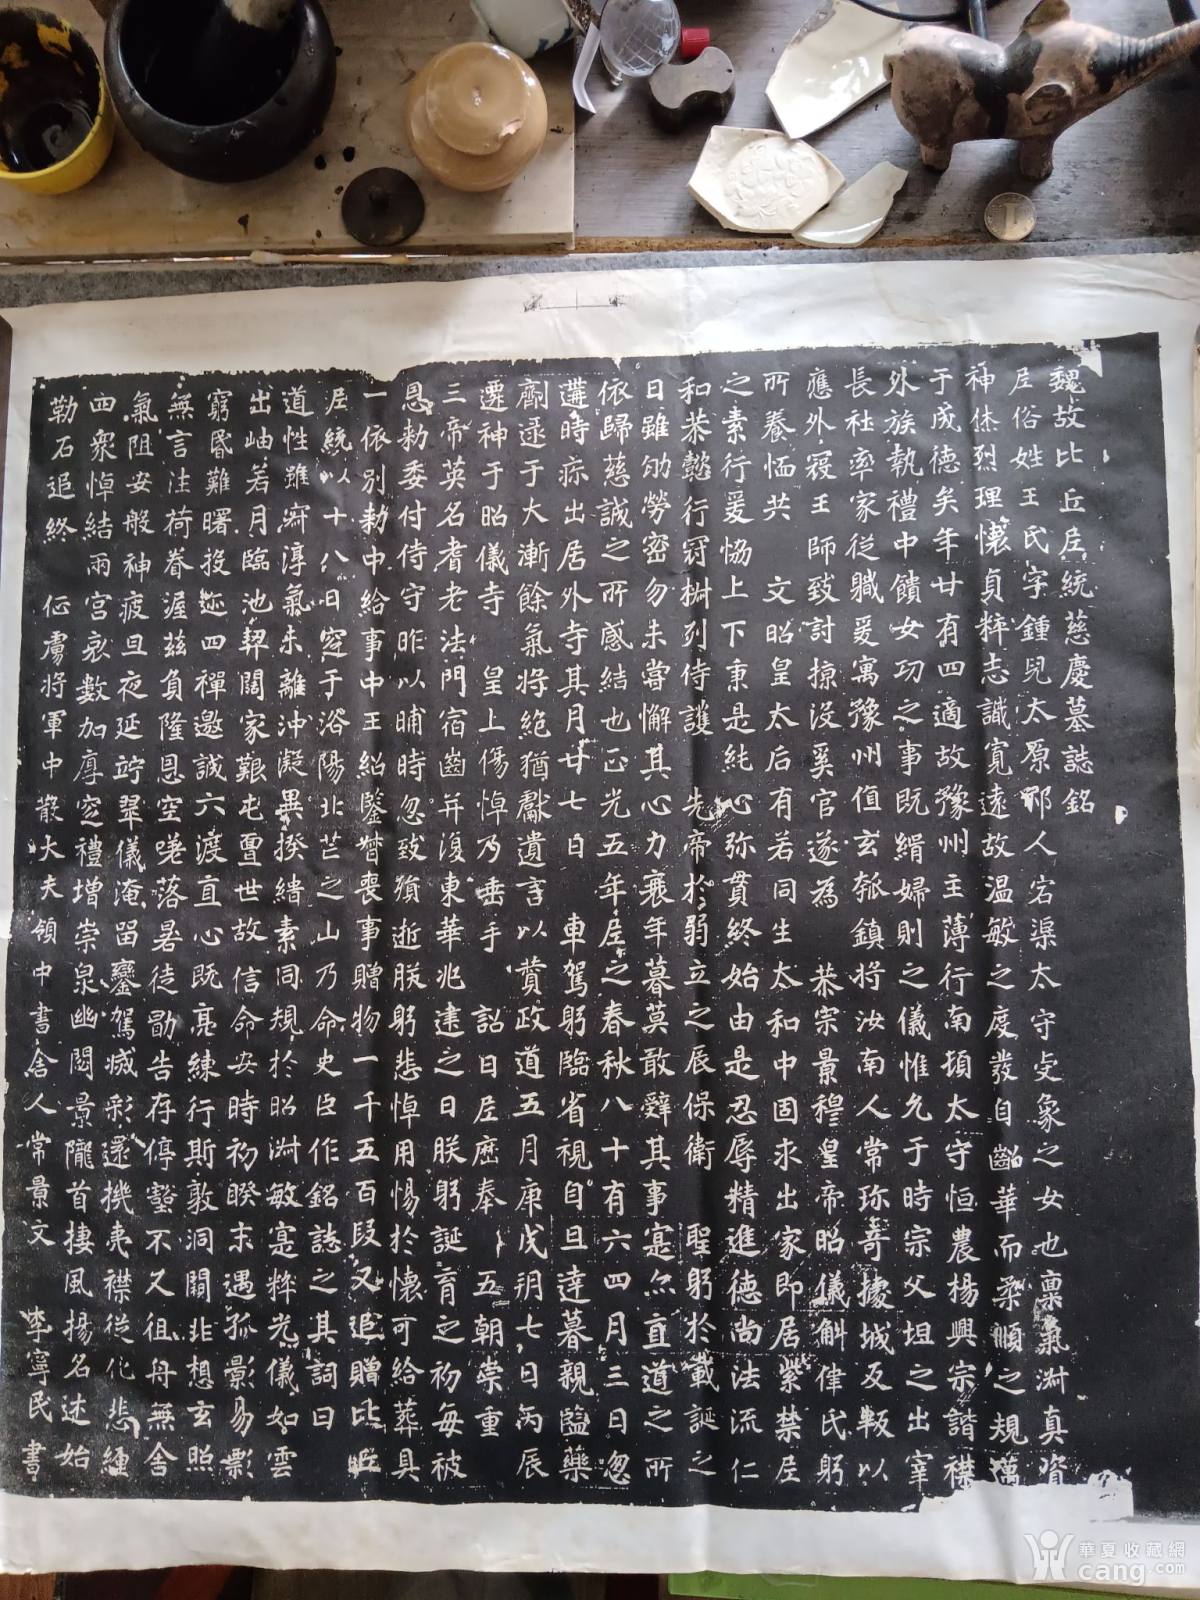 魏故比丘尼統慈慶墓誌銘
尼俗姓王氏字鍾兒太原祁人宕渠太守虔象之女也稟氣淑真資
神休烈理懷貞粹志識寬遠故溫敏之度發自齠華而柔順之規邁
于成德矣年廿有四適故豫州主薄行南頓太守恒農楊興宗諧襟
外族執禮中饋女功之事既緝婦則之儀惟允于時宗父坦之出宰
長社率家從職爰寓豫州值玄瓠鎮將汝南人常珍奇據城反叛以
應外寇王師致討掠沒奚官遂為 恭宗景穆皇帝昭儀斛律氏躬
所養恤共 文昭皇太后有若同生太和中固求出家即居紫禁尼
之素行爰協上下秉是純心弥貫終始由是忍辱精進德尚法流仁
和恭懿行冠椒列侍護 先帝於弱立之辰保衛 聖躬於載誕之
日雖劬勞密勿未嘗懈其心力衰年暮莫敢辭其事寔亦直道之所
依歸慈誠之所感結也正光五年尼之春秋八十有六四月三日忽
遘時疹出居外寺其月廿七日 車駕躬臨省視自旦達暮親監藥
劑逯于大漸餘氣將絕猶獻遺言以贊政道五月庚戌朔七日丙辰
遷神于昭儀寺 皇上傷悼乃垂手 詔曰尼歷奉 五朝崇重
三帝英名耆老法門宿齒并復東華兆建之日朕躬誕育之初每被
恩勑委付侍守昨以晡時忽致殞逝朕躬悲悼用惕於懷可給葬具
一依別勑中給事中王紹鑒督喪事贈物一千五百段又追贈比丘
尼統以十八日窆于洛陽北芒之山乃命史臣作銘誌之其詞曰
道性雖寂淳氣未離沖凝異揆緇素同規於昭淑敏寔粹光儀如雲
出岫若月臨池契闊家艱屯亶世故信命安時初睽末遇孤影易彯
窮昏難曙投迹四禪邀誠六渡直心既亮練行斯敦洞闢非想玄照
無言注荷眷渥茲負隆恩空嗟落晷徒勖告存停壑不久徂舟無舍
氣阻安般神疲旦夜延竚翠儀淹留鑾駕滅彩還機夷襟從化悲纏
四衆悼結兩宮哀數加厚窆禮增崇泉幽閟景隴首棲風揚名述始
勒石追終 征虜將軍中散大夫領中書舍人常景文 李寧民書
華夏收藏網
cang.com